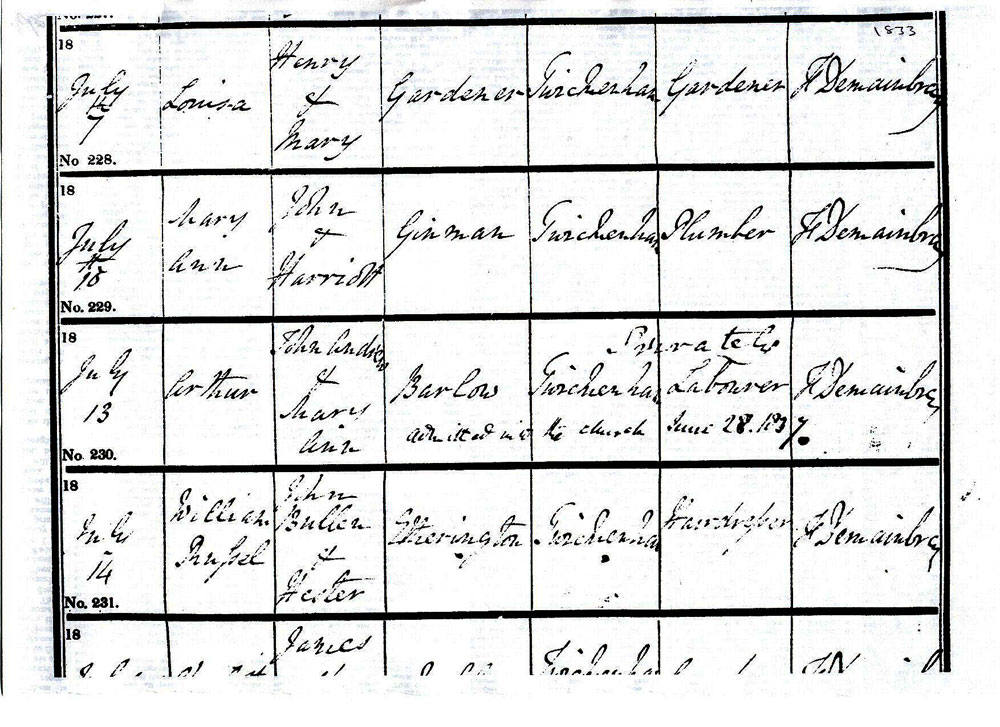 1833
18
July
14
7
Louisa
Henry
&
Mary
Gardener
Twickenham
Gardener
F Demainbray
No 228.
18
July
18
Mary
Ann
John
&
Harriott
Ginman
Twickenham
Plumber
F Demainbray
No. 229.
18
July
13
Arthur
John Andrew
&
Mary
Ann
Barlow
Twickenham
Privately
Labourer
F Demainbray
admitted into the church June 28. 1837.
No. 230.
18
July
14
William
Russel
John
Bullen
&
Hester
Etherington
Twickenham
Hairdresser
F Demainbray
No. 231.
18
James
Twickenham